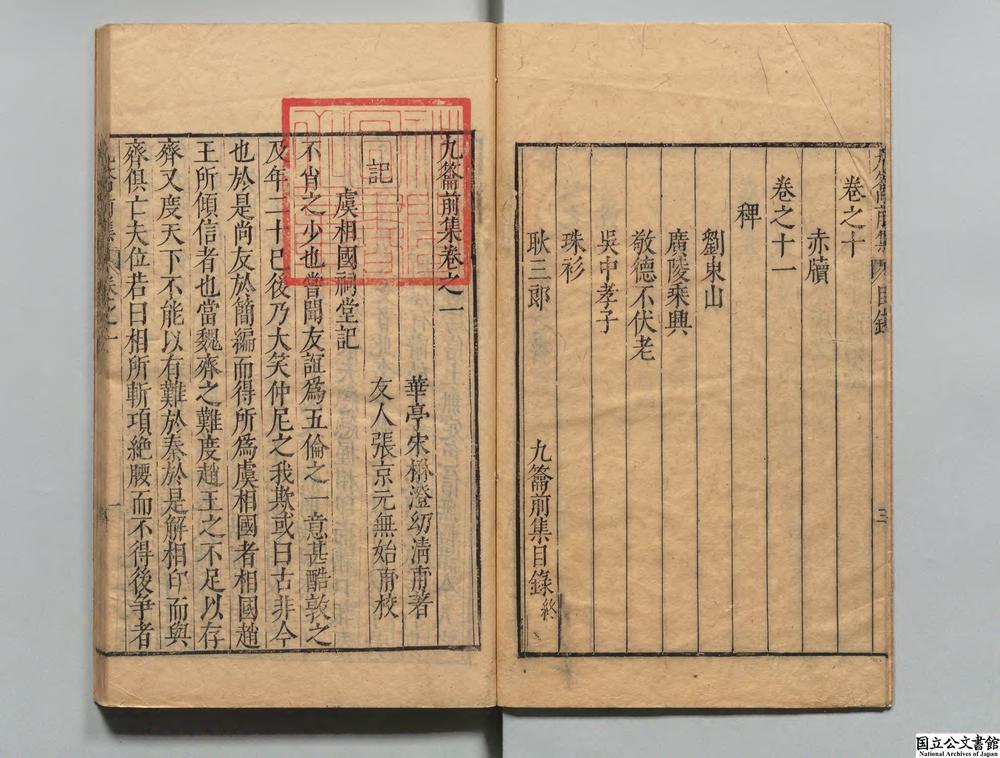 卷之十
赤牘
卷之十一
稗
劉東山
廣陵乘興
敬德不伏老
吳中孝子
珠衫
耿三郎
九籥前集目錄終
三
九籥前集卷之一
華亭宋楙澄幼清甫著
友人張京元無始甫校
記
虞相國祠堂記
不肖之少也嘗聞友誼爲五倫之一意甚酷敦之
及年二十巳後乃大笑仲尼之我欺或曰古非今
也於是尚友於簡編而得所爲虞相國者相國趙
王所傾信者也當魏齊之難度趙王之不足以存
齊又度天下不能以有難於秦於是解相印而與
齊俱亡夫位若曰相所斬項絶腰而不得後爭者
一
国立公文書館
National Archives of Japan